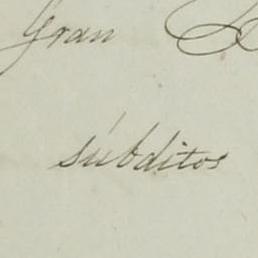 Gran
súbditos